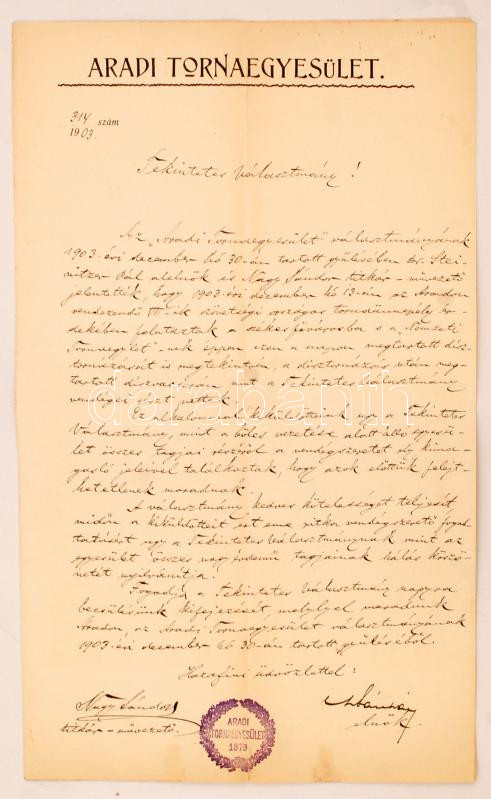 ARADI TORNAEGYESÜLET.
314 szám
1903.
Tekintetes Választmány!
Az „Aradi Tornaegyesület" választmányának
1903. évi december hó 30-án tartott gyülésében Dr. Stei-
nitzer Pál alelnök és Nagy Sándor titkár-művezető
jelentették, hogy 1903. évi dezember hó 13-án az Aradon
rendezendő VI-ik szövetségi országos tornaünnepély ér-
dekében felutaztak a székesfővárosba s a „Nemzeti
Tornaegylet"-nek éppen ezen a napon megtartott dísz-
tornázását is megtekintvén, a dísztornázás után meg-
tartott díszvacsorán mint a Tekintetes Választmány
vendégei részt vettek.
Ez alkalommal kiküldötteink ugy a Tekintetes
Választmány, mint a bölcs vezetése alatt álló egyesü-
let összes tagjai részéről a vendégszeretet oly kima-
gasló jeleivel találkoztak, hogy azok előttük felejt-
hetetlenek maradnak.
A választmány kedves kötelességét teljesíti,
midőn a kiküldötteit ért eme ritka vendégszerető fogad-
tatásért ugy a Tekintetes Választmánynak mint az
egyesület összes nagyérdemü tagjainak hálás köszö-
netét nyilvánítja.
Fogadja a Tekintetes Választmány nagyra
becsülésünk kifejezését melylyel maradunk
Aradon, az Aradi Tornaegyesület választmányának
1903. évi december hó 30-án tartott gyüléséből.
Hazafiui üdvözlettel:
Nagy Sándor
titkár-művezető.
elnök.
ARADI
TORNAEGYESÜLET
1879
darabanth